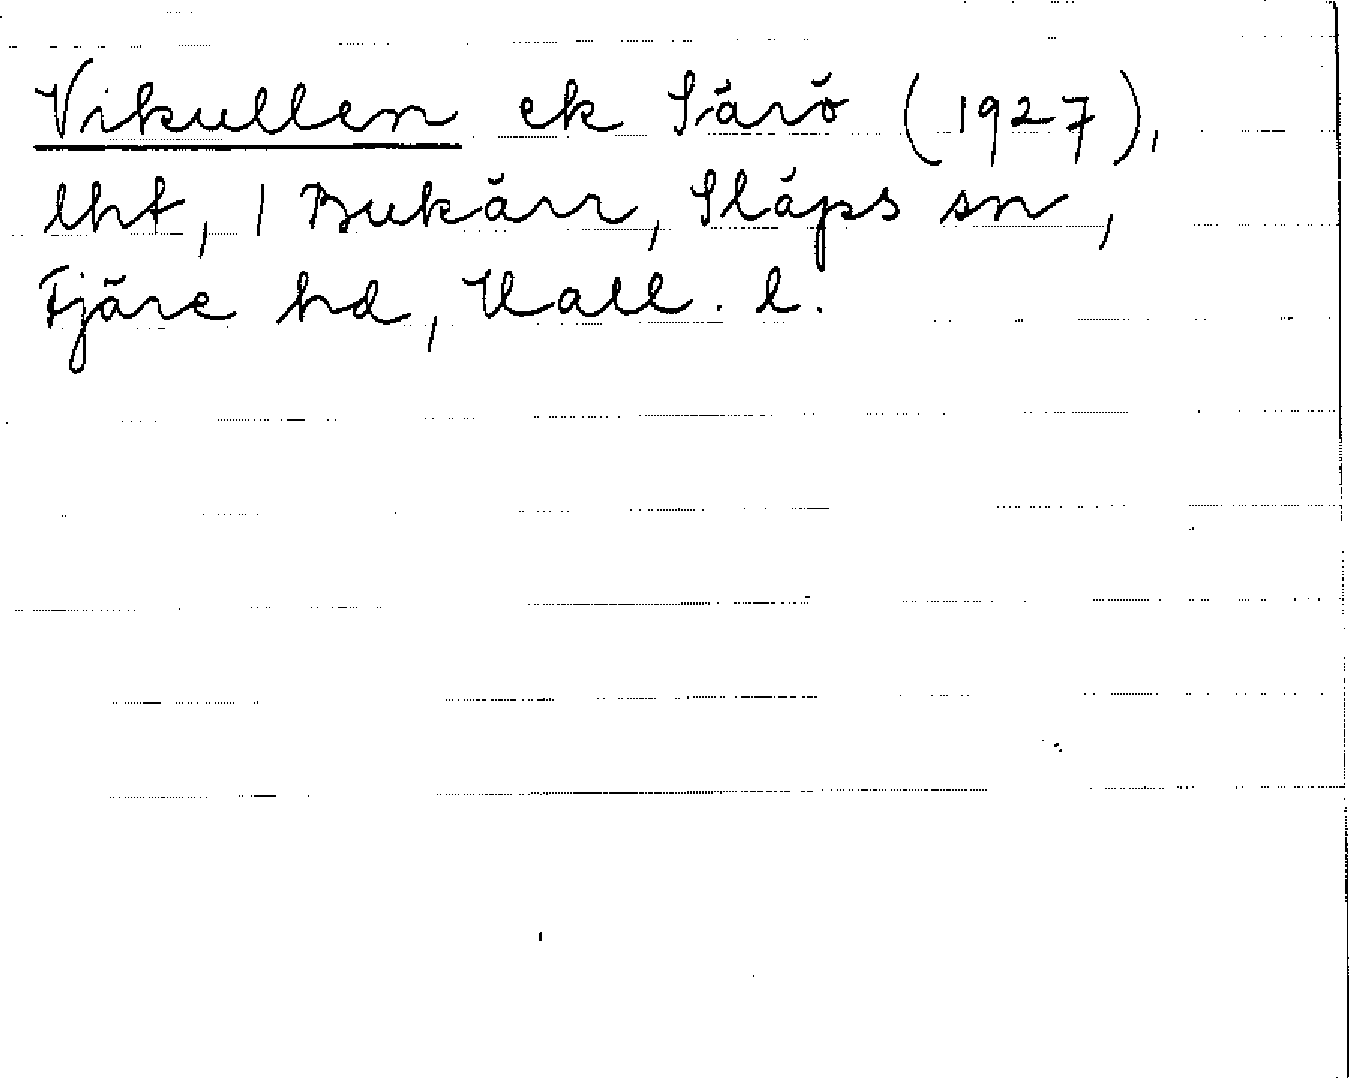 Vikullen ek Särö (1927),
lht, 1 Bukärr, Släps sn,
Fjäre hd, Hall. l.